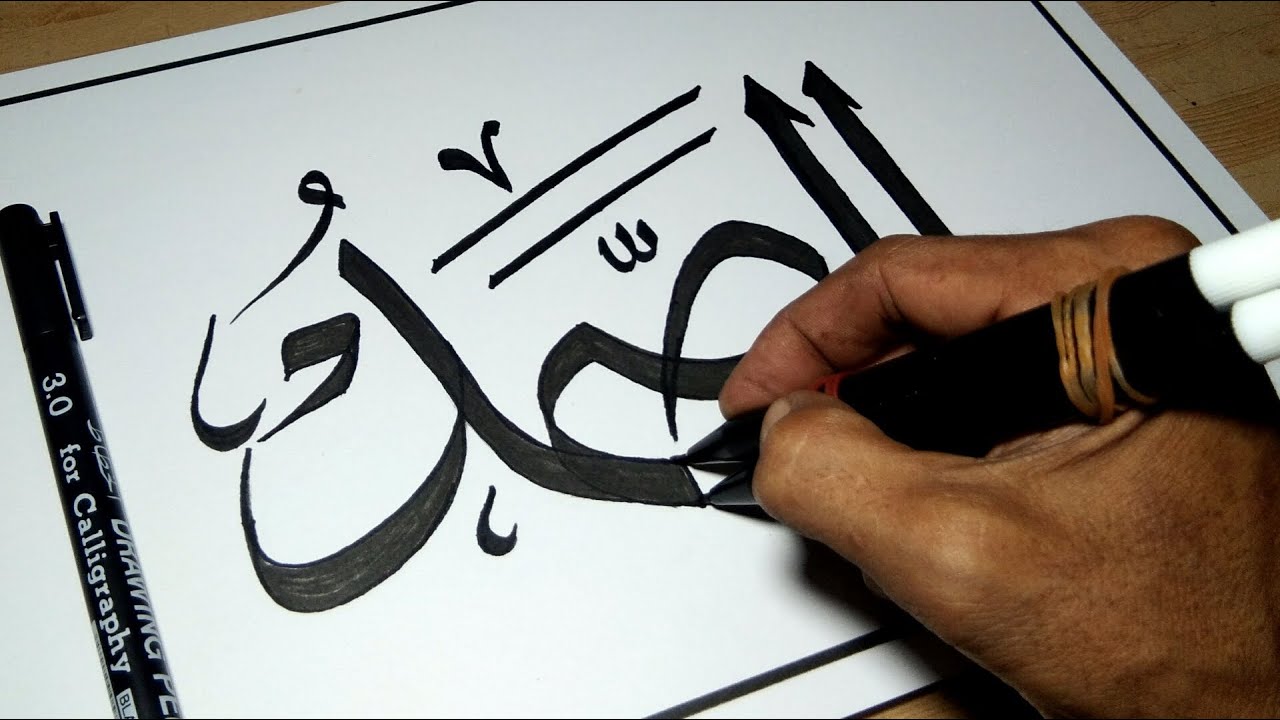 الصَّمَدُ
3.0 for Calligraphy
DRAWING PE